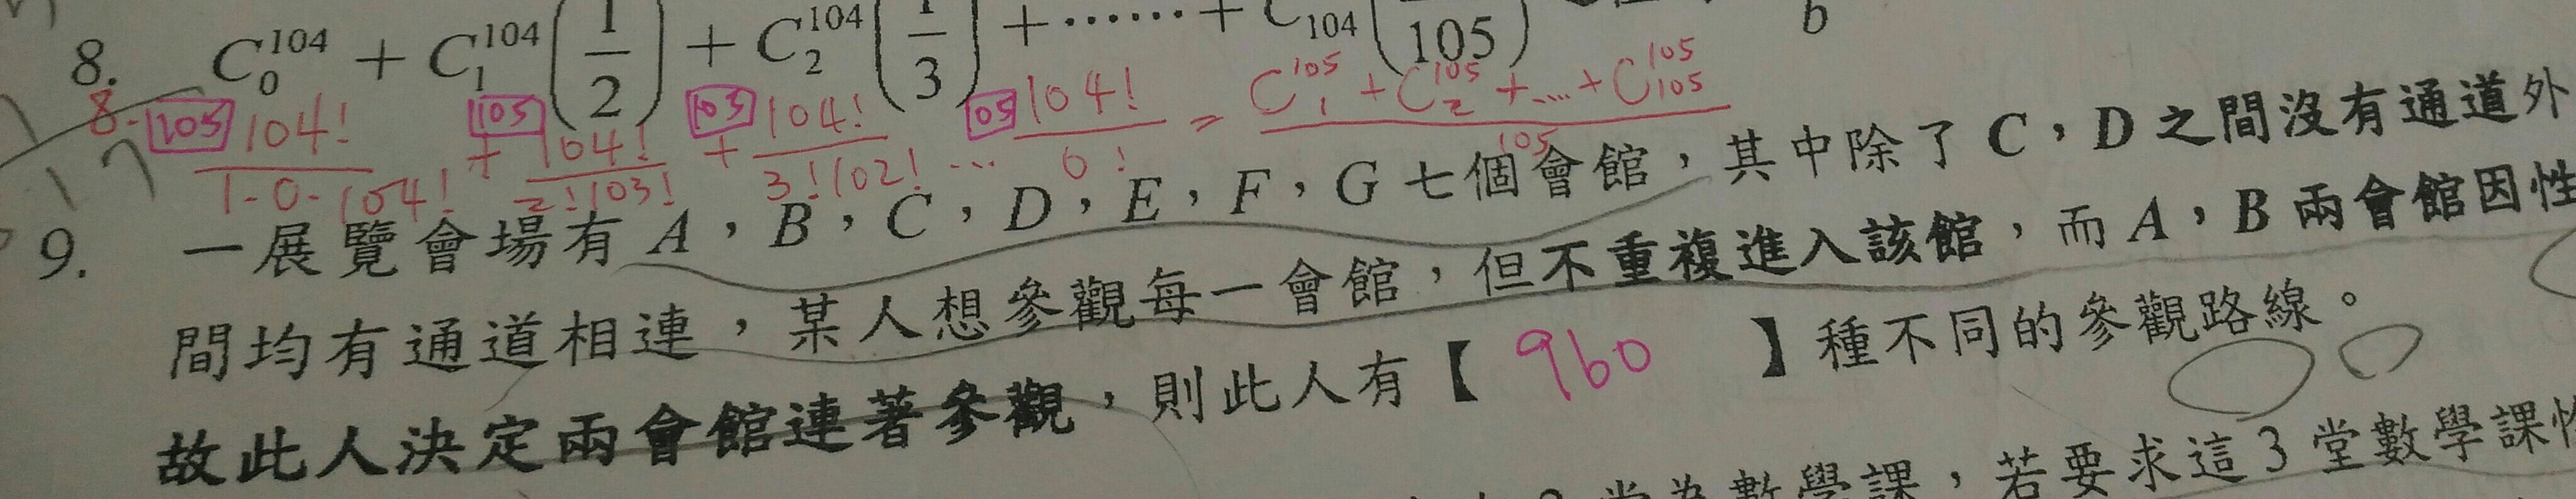 8. C₀¹⁰⁴ + C₁¹⁰⁴(1/2) + C₂¹⁰⁴(1/3) + ⋯⋯ + C₁₀₄(1/105) b
8. 105 104!/1·0·104! + 105 104!/2!103! + 105 104!/3!102! ... 105 104!/0! = (C₁¹⁰⁵ + C₂¹⁰⁵ + ... + C₁₀₅¹⁰⁵)/105
9. 一展覽會場有 A，B，C，D，E，F，G 七個會館，其中除了 C，D 之間沒有通道外
間均有通道相連，某人想參觀每一會館，但不重複進入該館，而 A，B 兩會館因性
故此人決定兩會館連著參觀，則此人有【 960 】種不同的參觀路線。
堂為數學課，若要求這 3 堂數學課